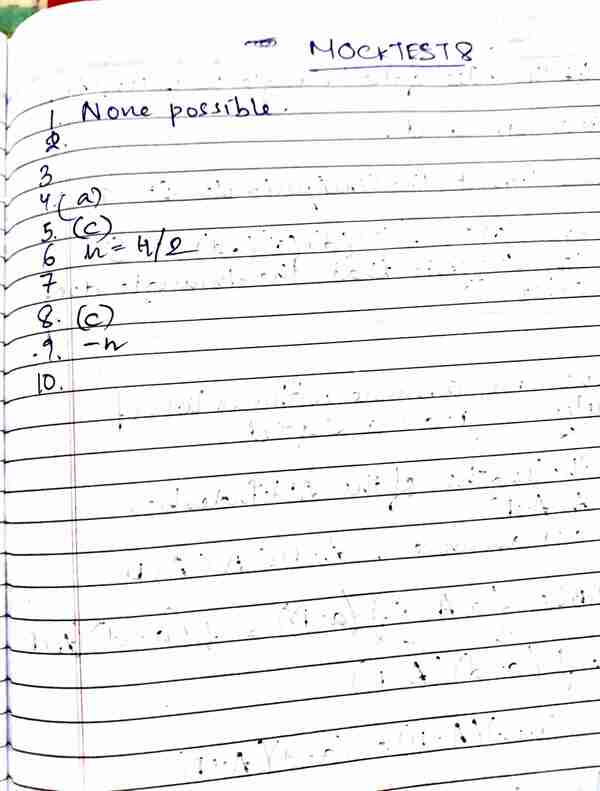 MOCKTEST 8
1. None possible.
2.
3
4. (a)
5. (c)
6 h = H/2
7
8. (c)
9. -h
10.